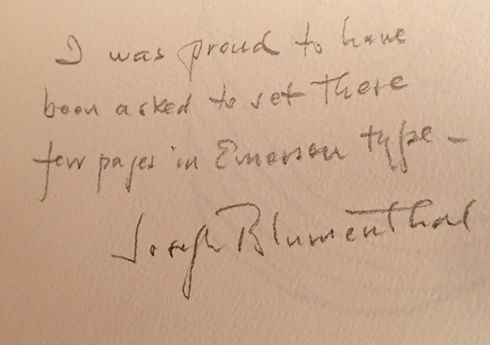 I was proud to have
been asked to set these
few pages in Emerson type –
Joseph Blumenthal